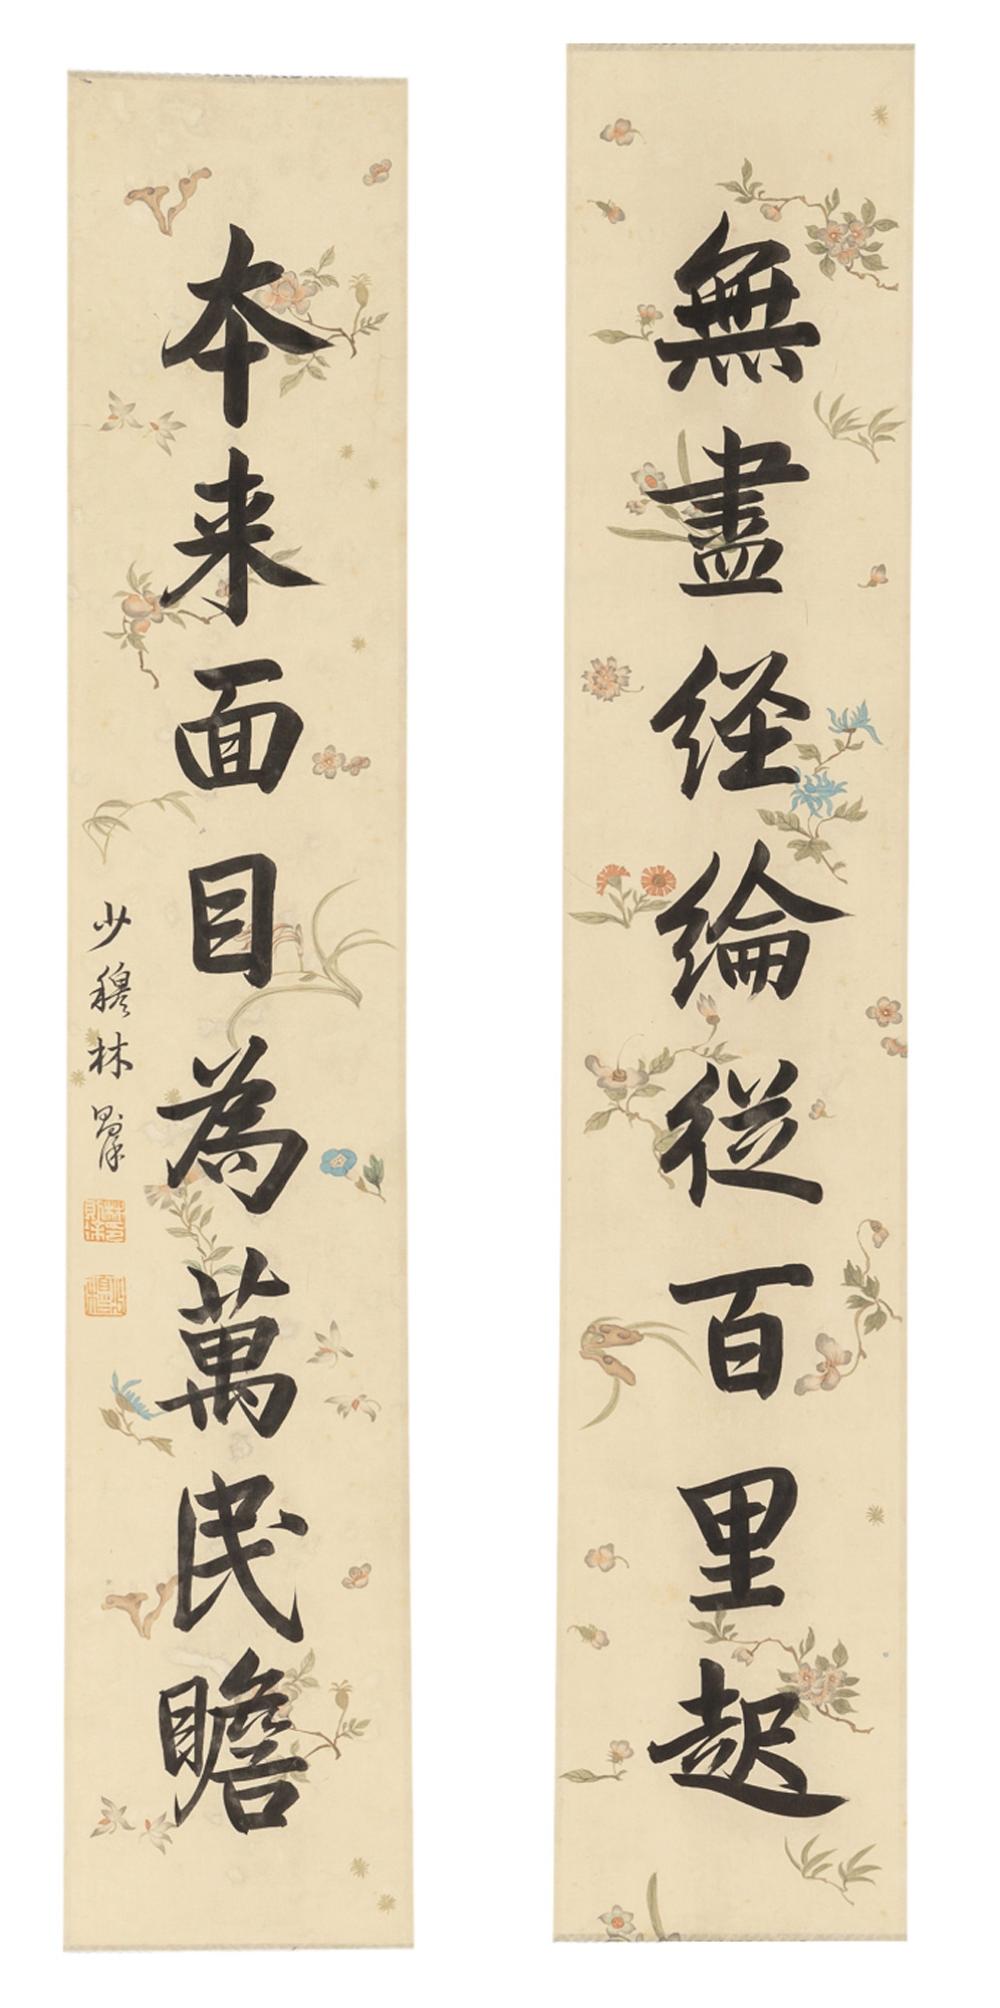 無盡經綸從百里起
本来面目為萬民瞻
少穆林則徐
林則徐